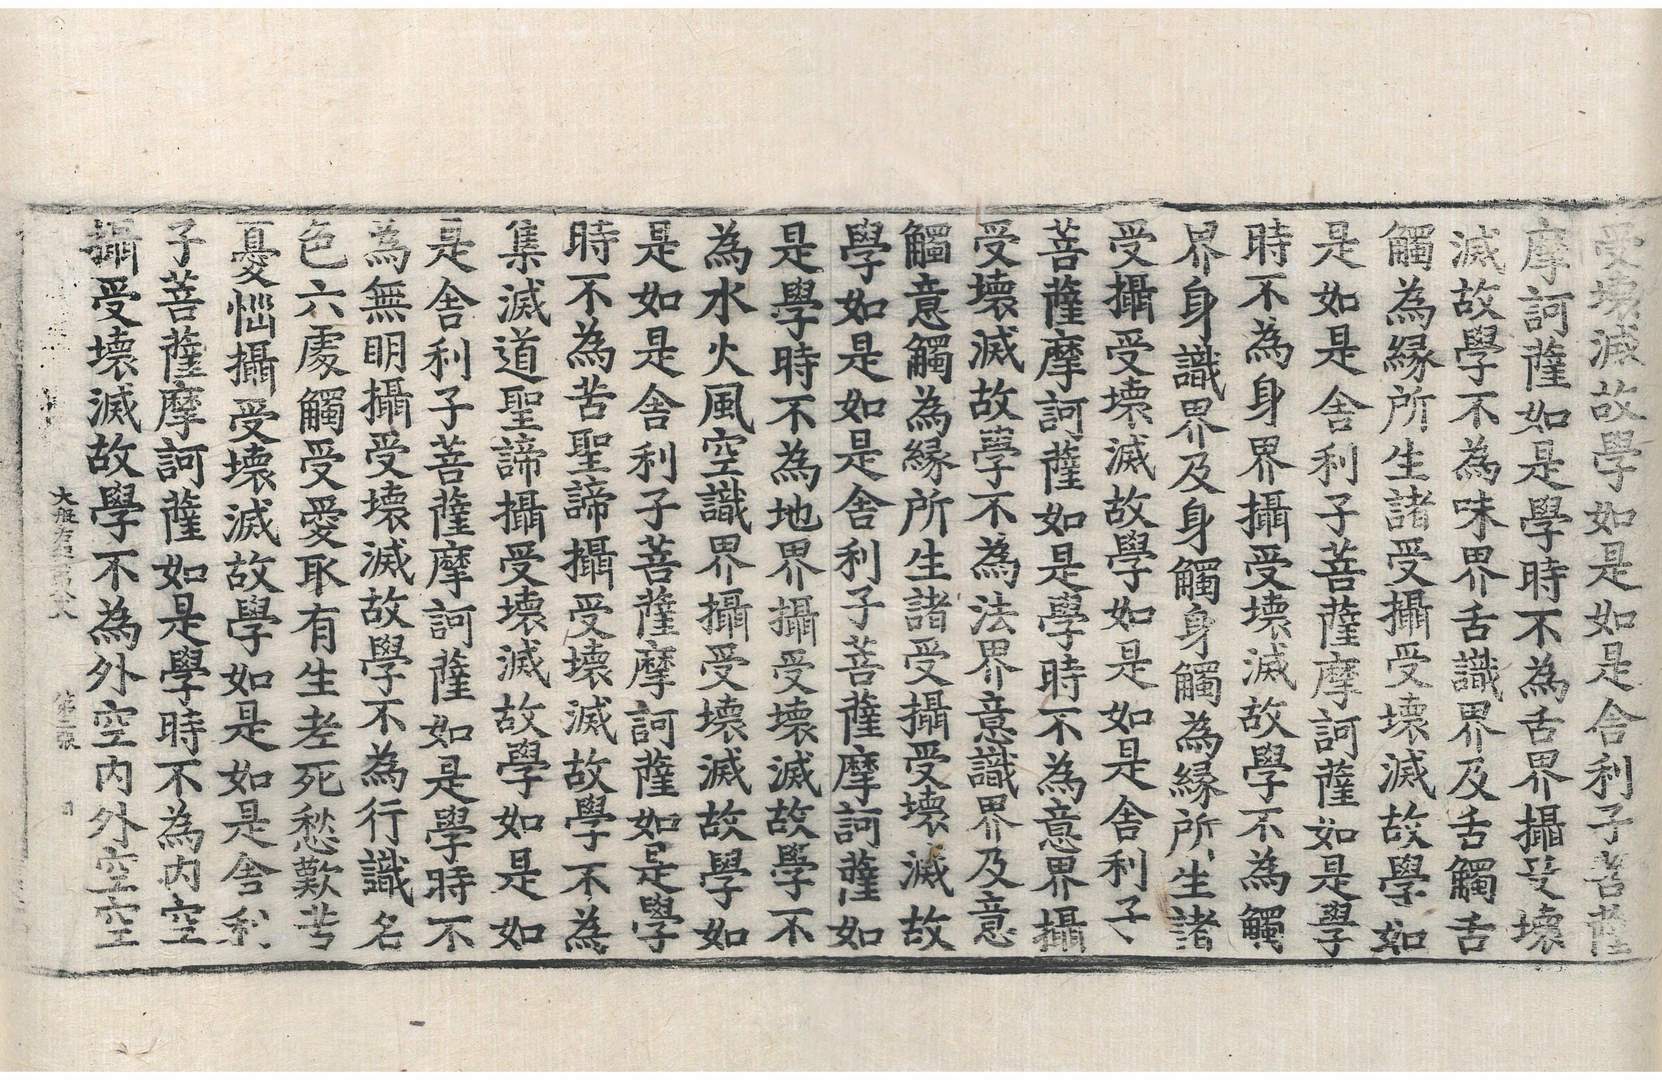 受壞滅故學如是如是舍利子菩薩
摩訶薩如是學時不為舌界攝受壞
滅故學不為味界舌識界及舌觸舌
觸為緣所生諸受攝受壞滅故學如
是如是舍利子菩薩摩訶薩如是學
時不為身界攝受壞滅故學不為觸
界身識界及身觸身觸為緣所生諸
受攝受壞滅故學如是如是舍利子
菩薩摩訶薩如是學時不為意界攝
受壞滅故學不為法界意識界及意
觸意觸為緣所生諸受攝受壞滅故
學如是如是舍利子菩薩摩訶薩如
是學時不為地界攝受壞滅故學不
為水火風空識界攝受壞滅故學如
是如是舍利子菩薩摩訶薩如是學
時不為苦聖諦攝受壞滅故學不為
集滅道聖諦攝受壞滅故學如是如
是舍利子菩薩摩訶薩如是學時不
為無明攝受壞滅故學不為行識名
色六處觸受愛取有生老死愁歎苦
憂惱攝受壞滅故學如是如是舍利
子菩薩摩訶薩如是學時不為內空
攝受壞滅故學不為外空內外空空
大般若 第二張